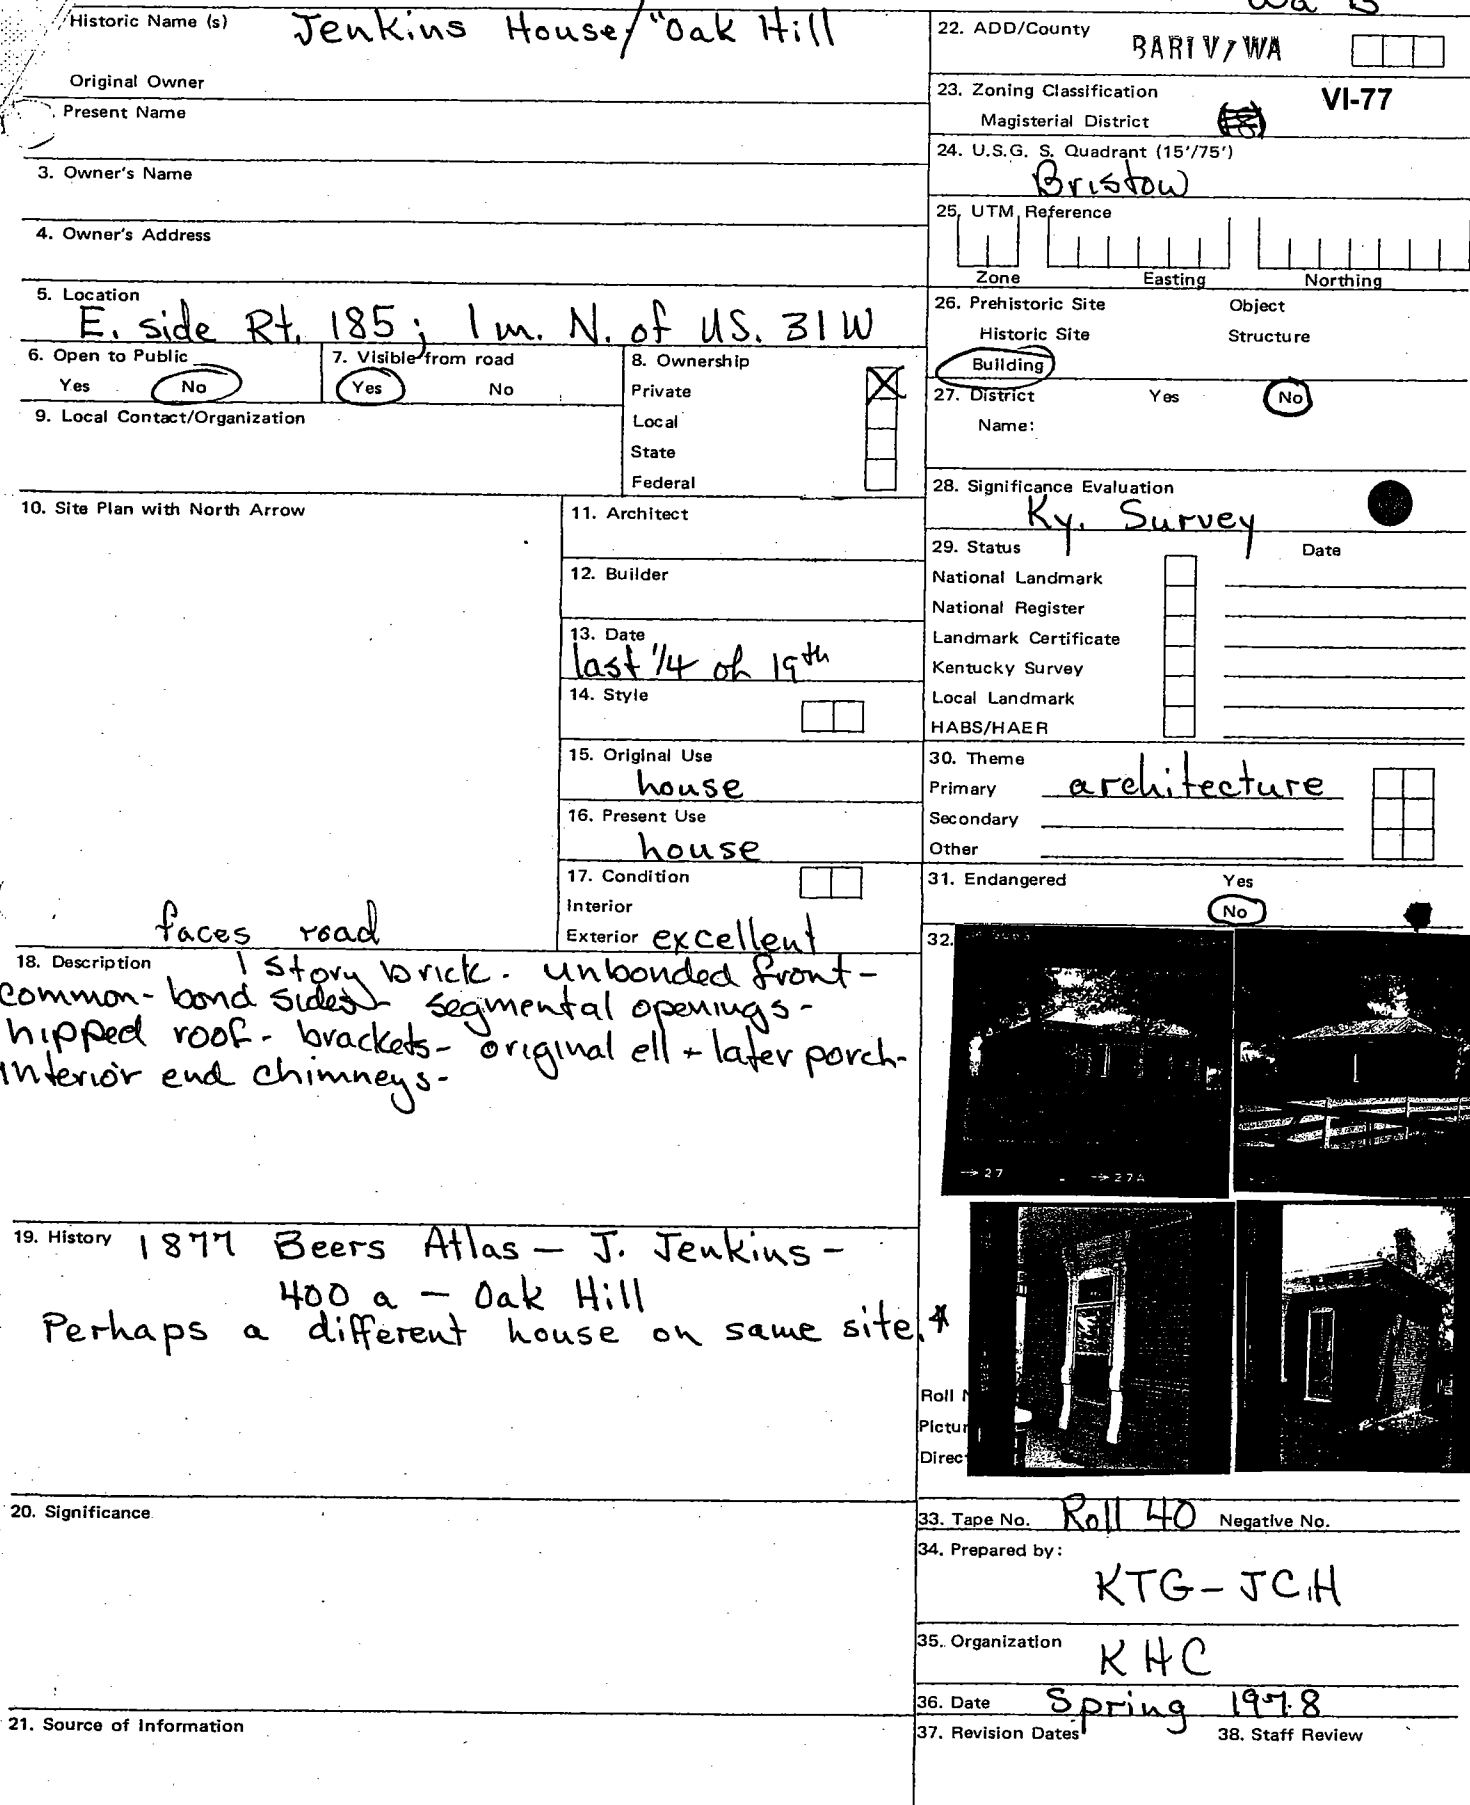 Wa B
Historic Name (s) Jenkins House/"Oak Hill
Original Owner
Present Name
3. Owner's Name
4. Owner's Address
5. Location
E. side Rt. 185; 1 m. N. of US. 31W
6. Open to Public
Yes No
7. Visible from road
Yes No
8. Ownership
Private
Local
State
Federal
9. Local Contact/Organization
10. Site Plan with North Arrow
faces road
11. Architect
12. Builder
13. Date
last 1/4 of 19th
14. Style
15. Original Use
house
16. Present Use
house
17. Condition
Interior
Exterior excellent
18. Description 1 story brick. unbonded front-
common-bond sides- segmental openings-
hipped roof- brackets- original ell + later porch-
interior end chimneys-
19. History 1877 Beers Atlas — J. Jenkins -
400 a — Oak Hill
Perhaps a different house on same site.*
20. Significance
21. Source of Information
22. ADD/County
BARIV/WA
23. Zoning Classification VI-77
Magisterial District
24. U.S.G. S. Quadrant (15'/75')
Bristow
25. UTM Reference
Zone Easting Northing
26. Prehistoric Site Object
Historic Site Structure
Building
27. District Yes No
Name:
28. Significance Evaluation
Ky. Survey
29. Status Date
National Landmark
National Register
Landmark Certificate
Kentucky Survey
Local Landmark
HABS/HAER
30. Theme
Primary architecture
Secondary
Other
31. Endangered Yes
No
32.
→27 →27A
Roll
33. Tape No. Roll 40 Negative No.
34. Prepared by:
KTG-JCH
35. Organization
KHC
36. Date Spring 1978
37. Revision Dates 38. Staff Review